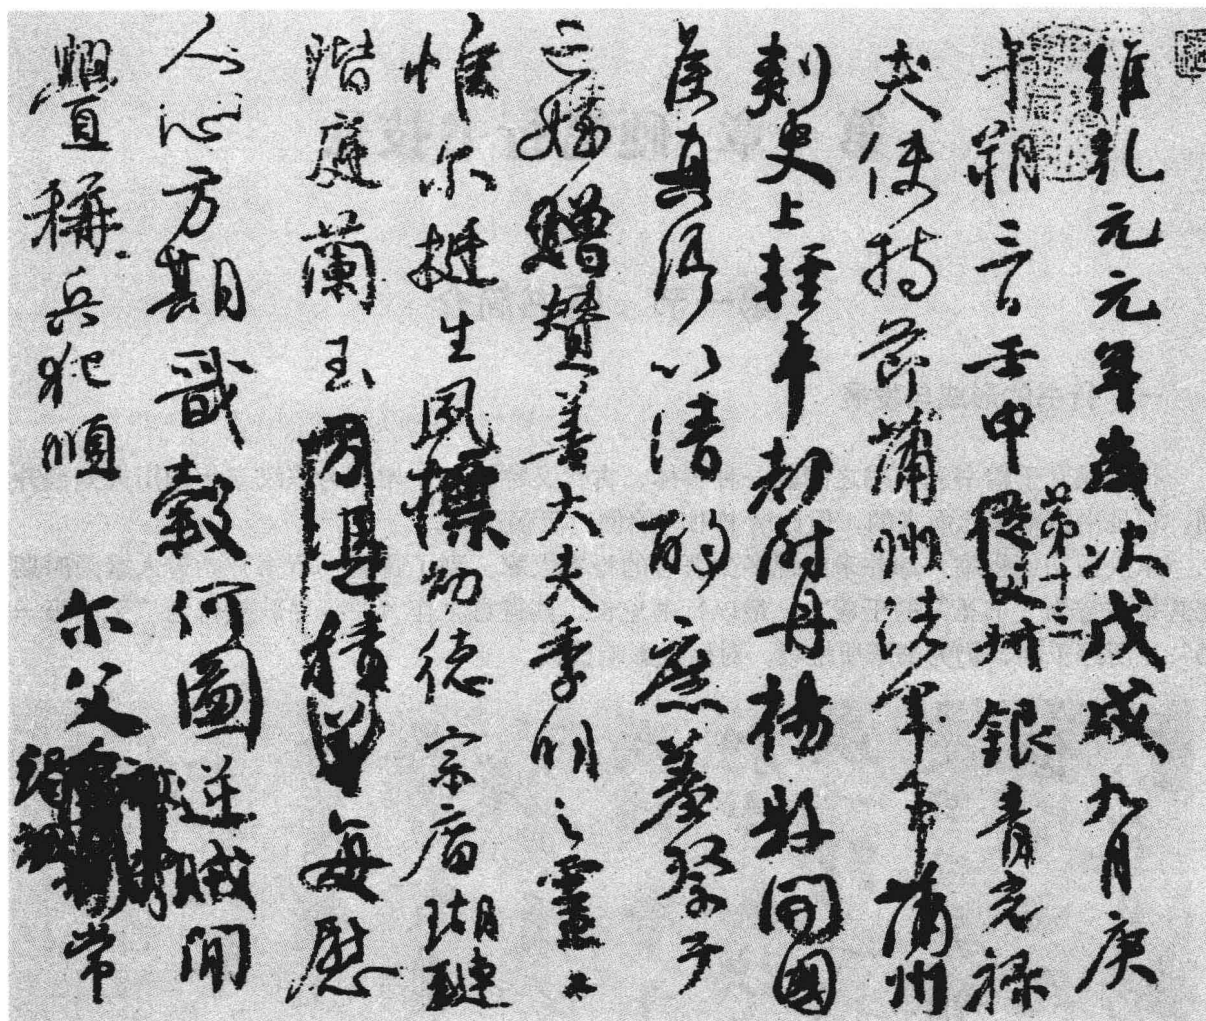 維乾元元年歲次戊戌九月庚
午朔三日壬申第十三從父叔銀青光祿
夫使持節蒲州諸軍事蒲州
刺史上輕車都尉丹楊縣開國
侯真卿以清酌庶羞祭于
亡姪贈贊善大夫季明之靈曰
惟爾挺生夙標幼德宗廟瑚璉
階庭蘭玉方憑積善每慰
人心方期戩穀何圖逆賊閒
釁稱兵犯順尔父竭誠常